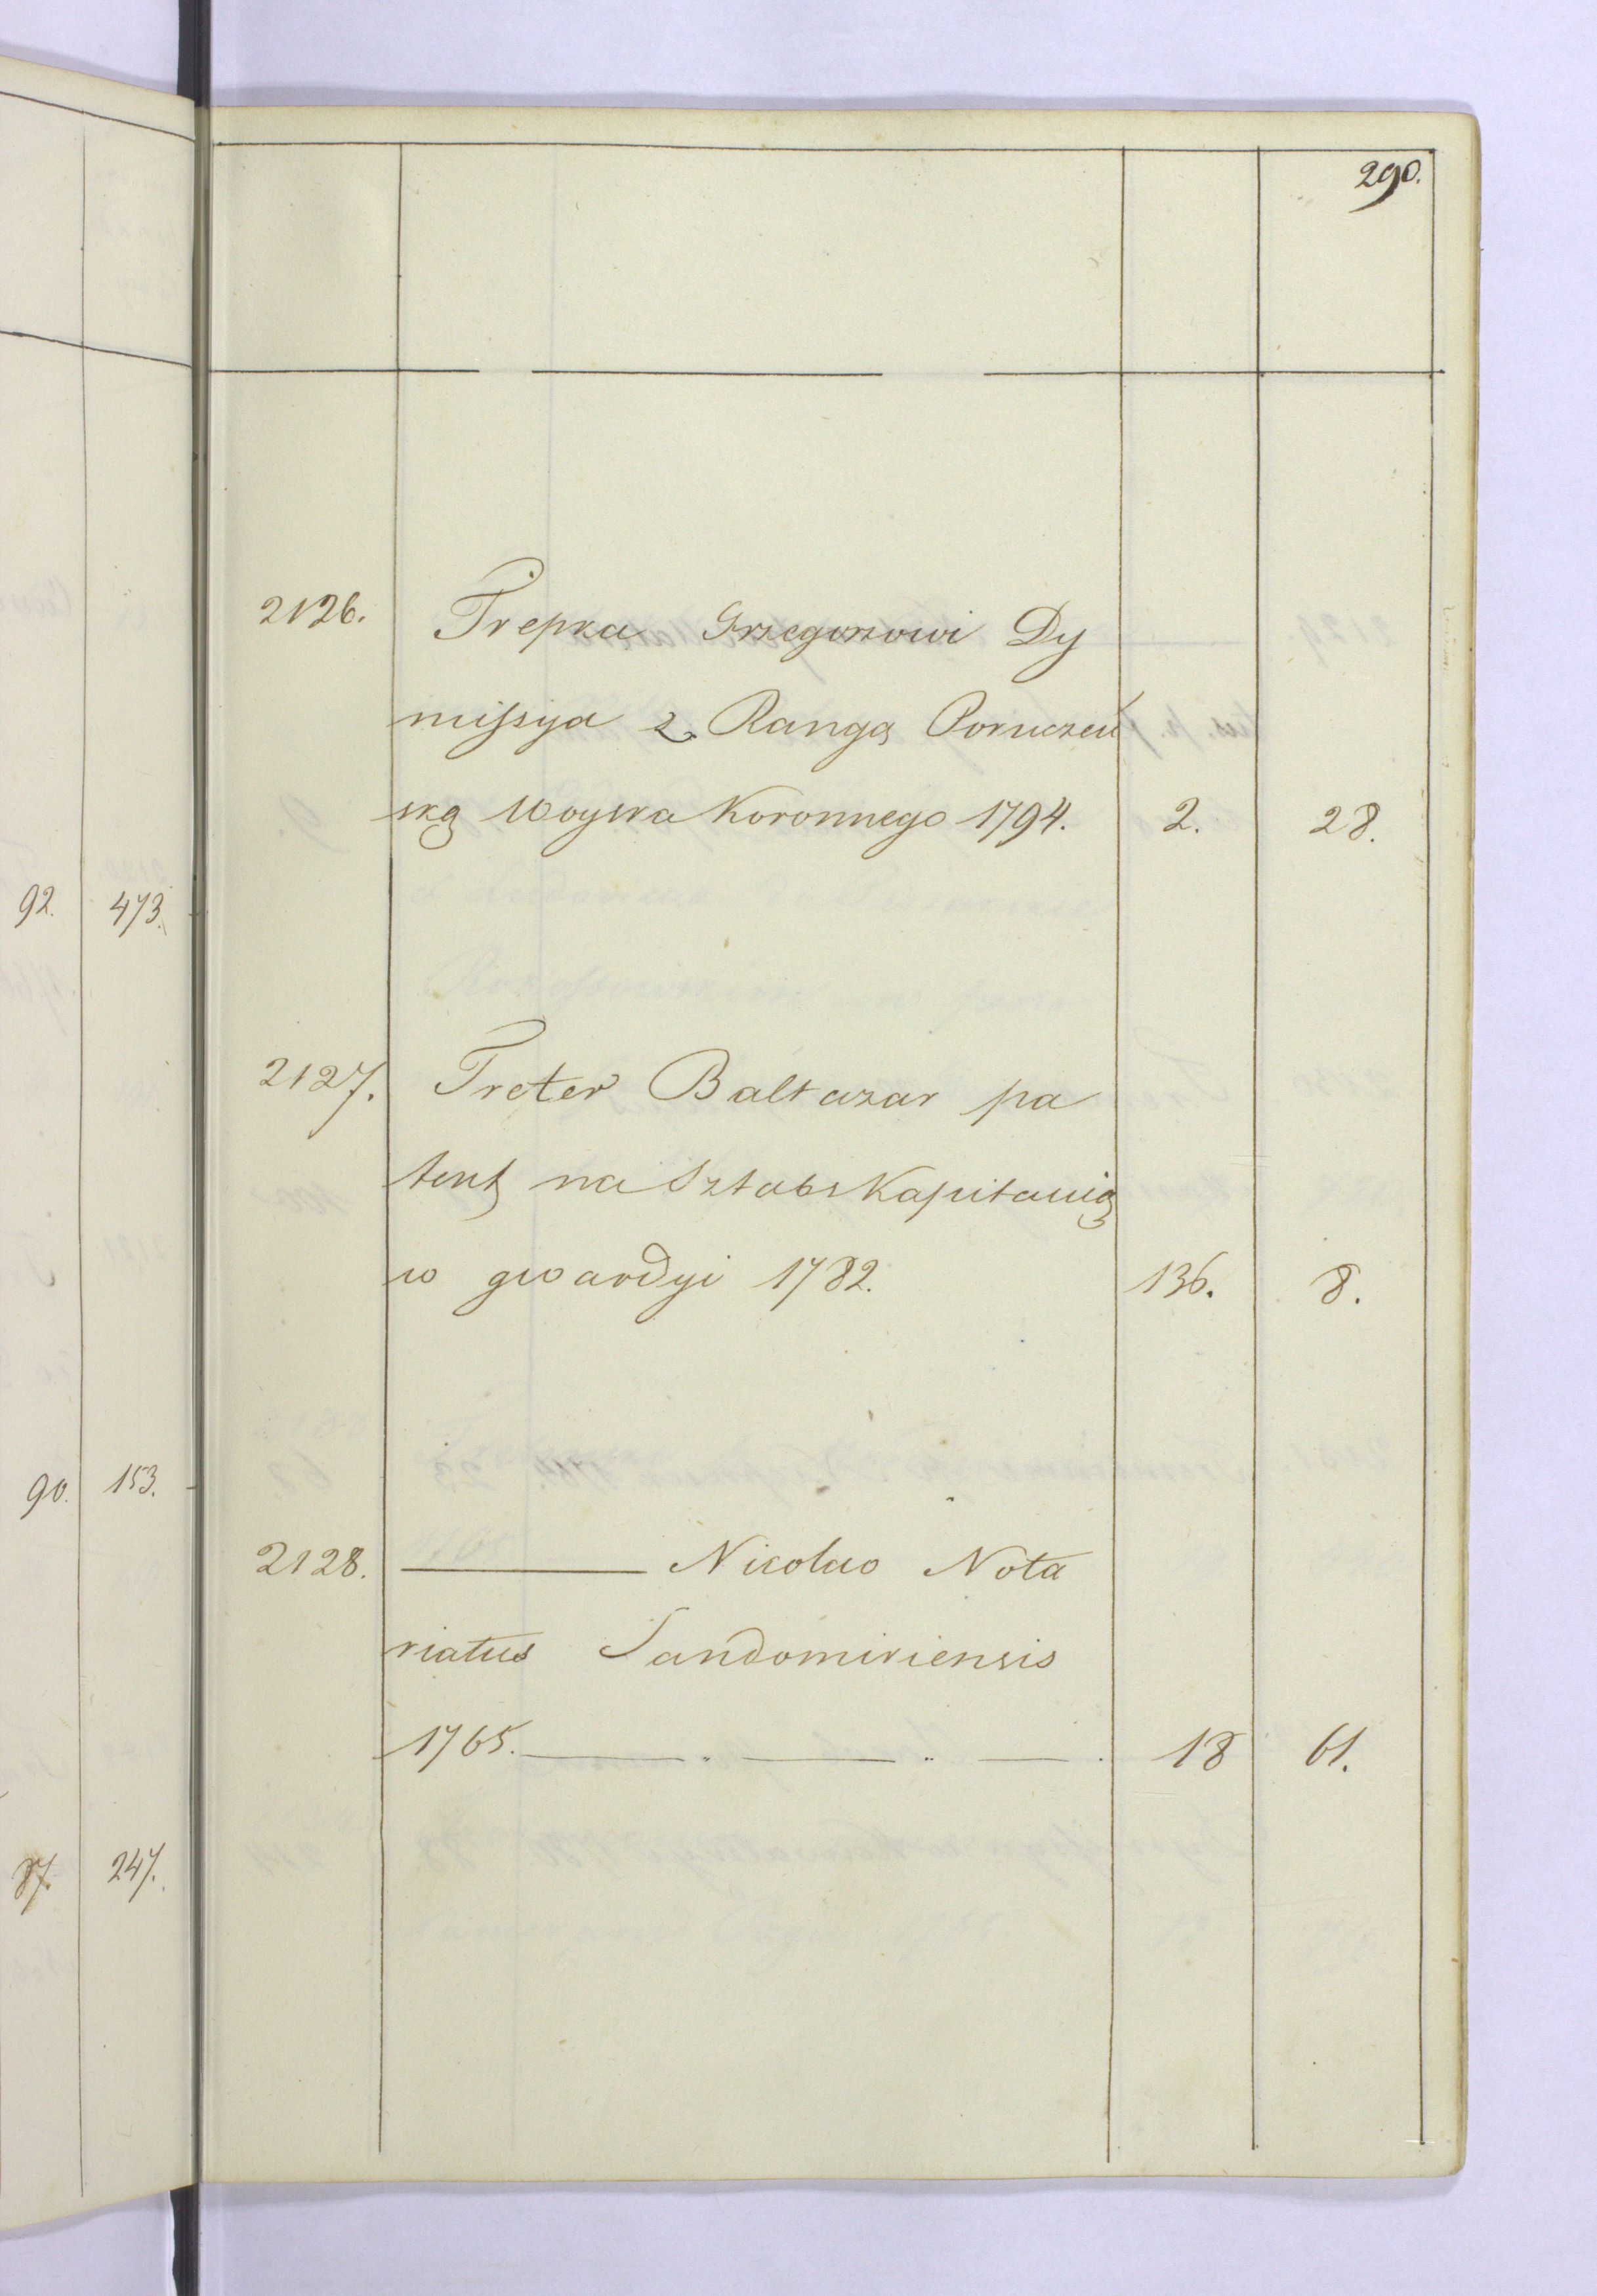 290.
2126. Trepka Grzegorzowi Dy
missya z Rangą Poruczeń
ską Woyska Koronnego 1794. 2. 28.
92. 473.
2127. Treter Baltazar pa
tent na Sztabs Kapitanią
w gwardyi 1782. 136. 8.
90. 153.
2128. ——— Nicolao Nota
riatus Sandomiriensis
1765. — „ — „ — . 18 61.
87. 247.